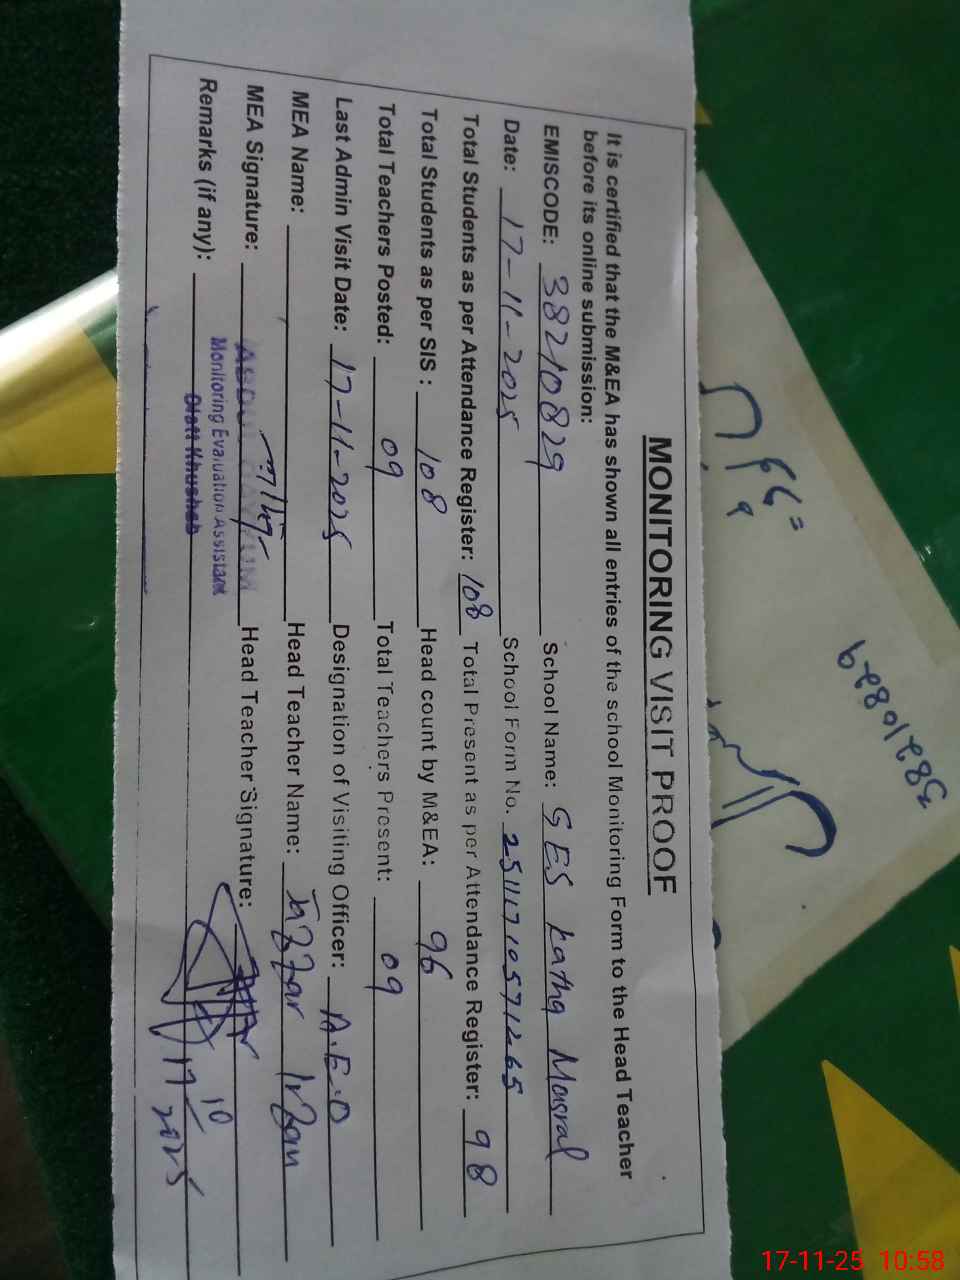 MONITORING VISIT PROOF
It is certified that the M&EA has shown all entries of the school Monitoring Form to the Head Teacher
before its online submission:
EMISCODE: 38210829 School Name: GES Katha Masral
Date: 17-11-2025 School Form No. 25111710571265
Total Students as per Attendance Register: 108 Total Present as per Attendance Register: 98
Total Students as per SIS : 108 Head count by M&EA: 96
Total Teachers Posted: 09 Total Teachers Present: 09
Last Admin Visit Date: 17-11-2025 Designation of Visiting Officer: A.E.O
MEA Name: Head Teacher Name:
MEA Signature: ABDUL QAYYUM Head Teacher Signature:
Monitoring Evaluation Assistant
Remarks (if any):
38210829
17-11-25 10:58